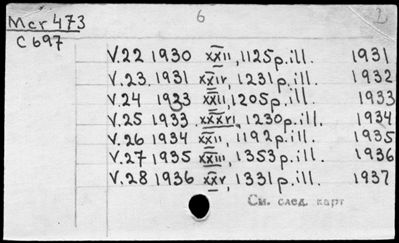 6 1
Мсг 473
C 697
V.22 1930 xxii, 1125 p. ill. 1931
V.23. 1931 xxiv, 1231 p. ill. 1932
V.24 1923 xxii, 1205 p. ill. 1933
V.25 1933 xxxvi, 1230 p. ill. 1934
V.26 1934 xxii, 1192 p. ill. 1935
V.27 1935 xxiii, 1353 p. ill. 1936
V.28 1936 xxv, 1331 p. ill. 1937
См. след. карт